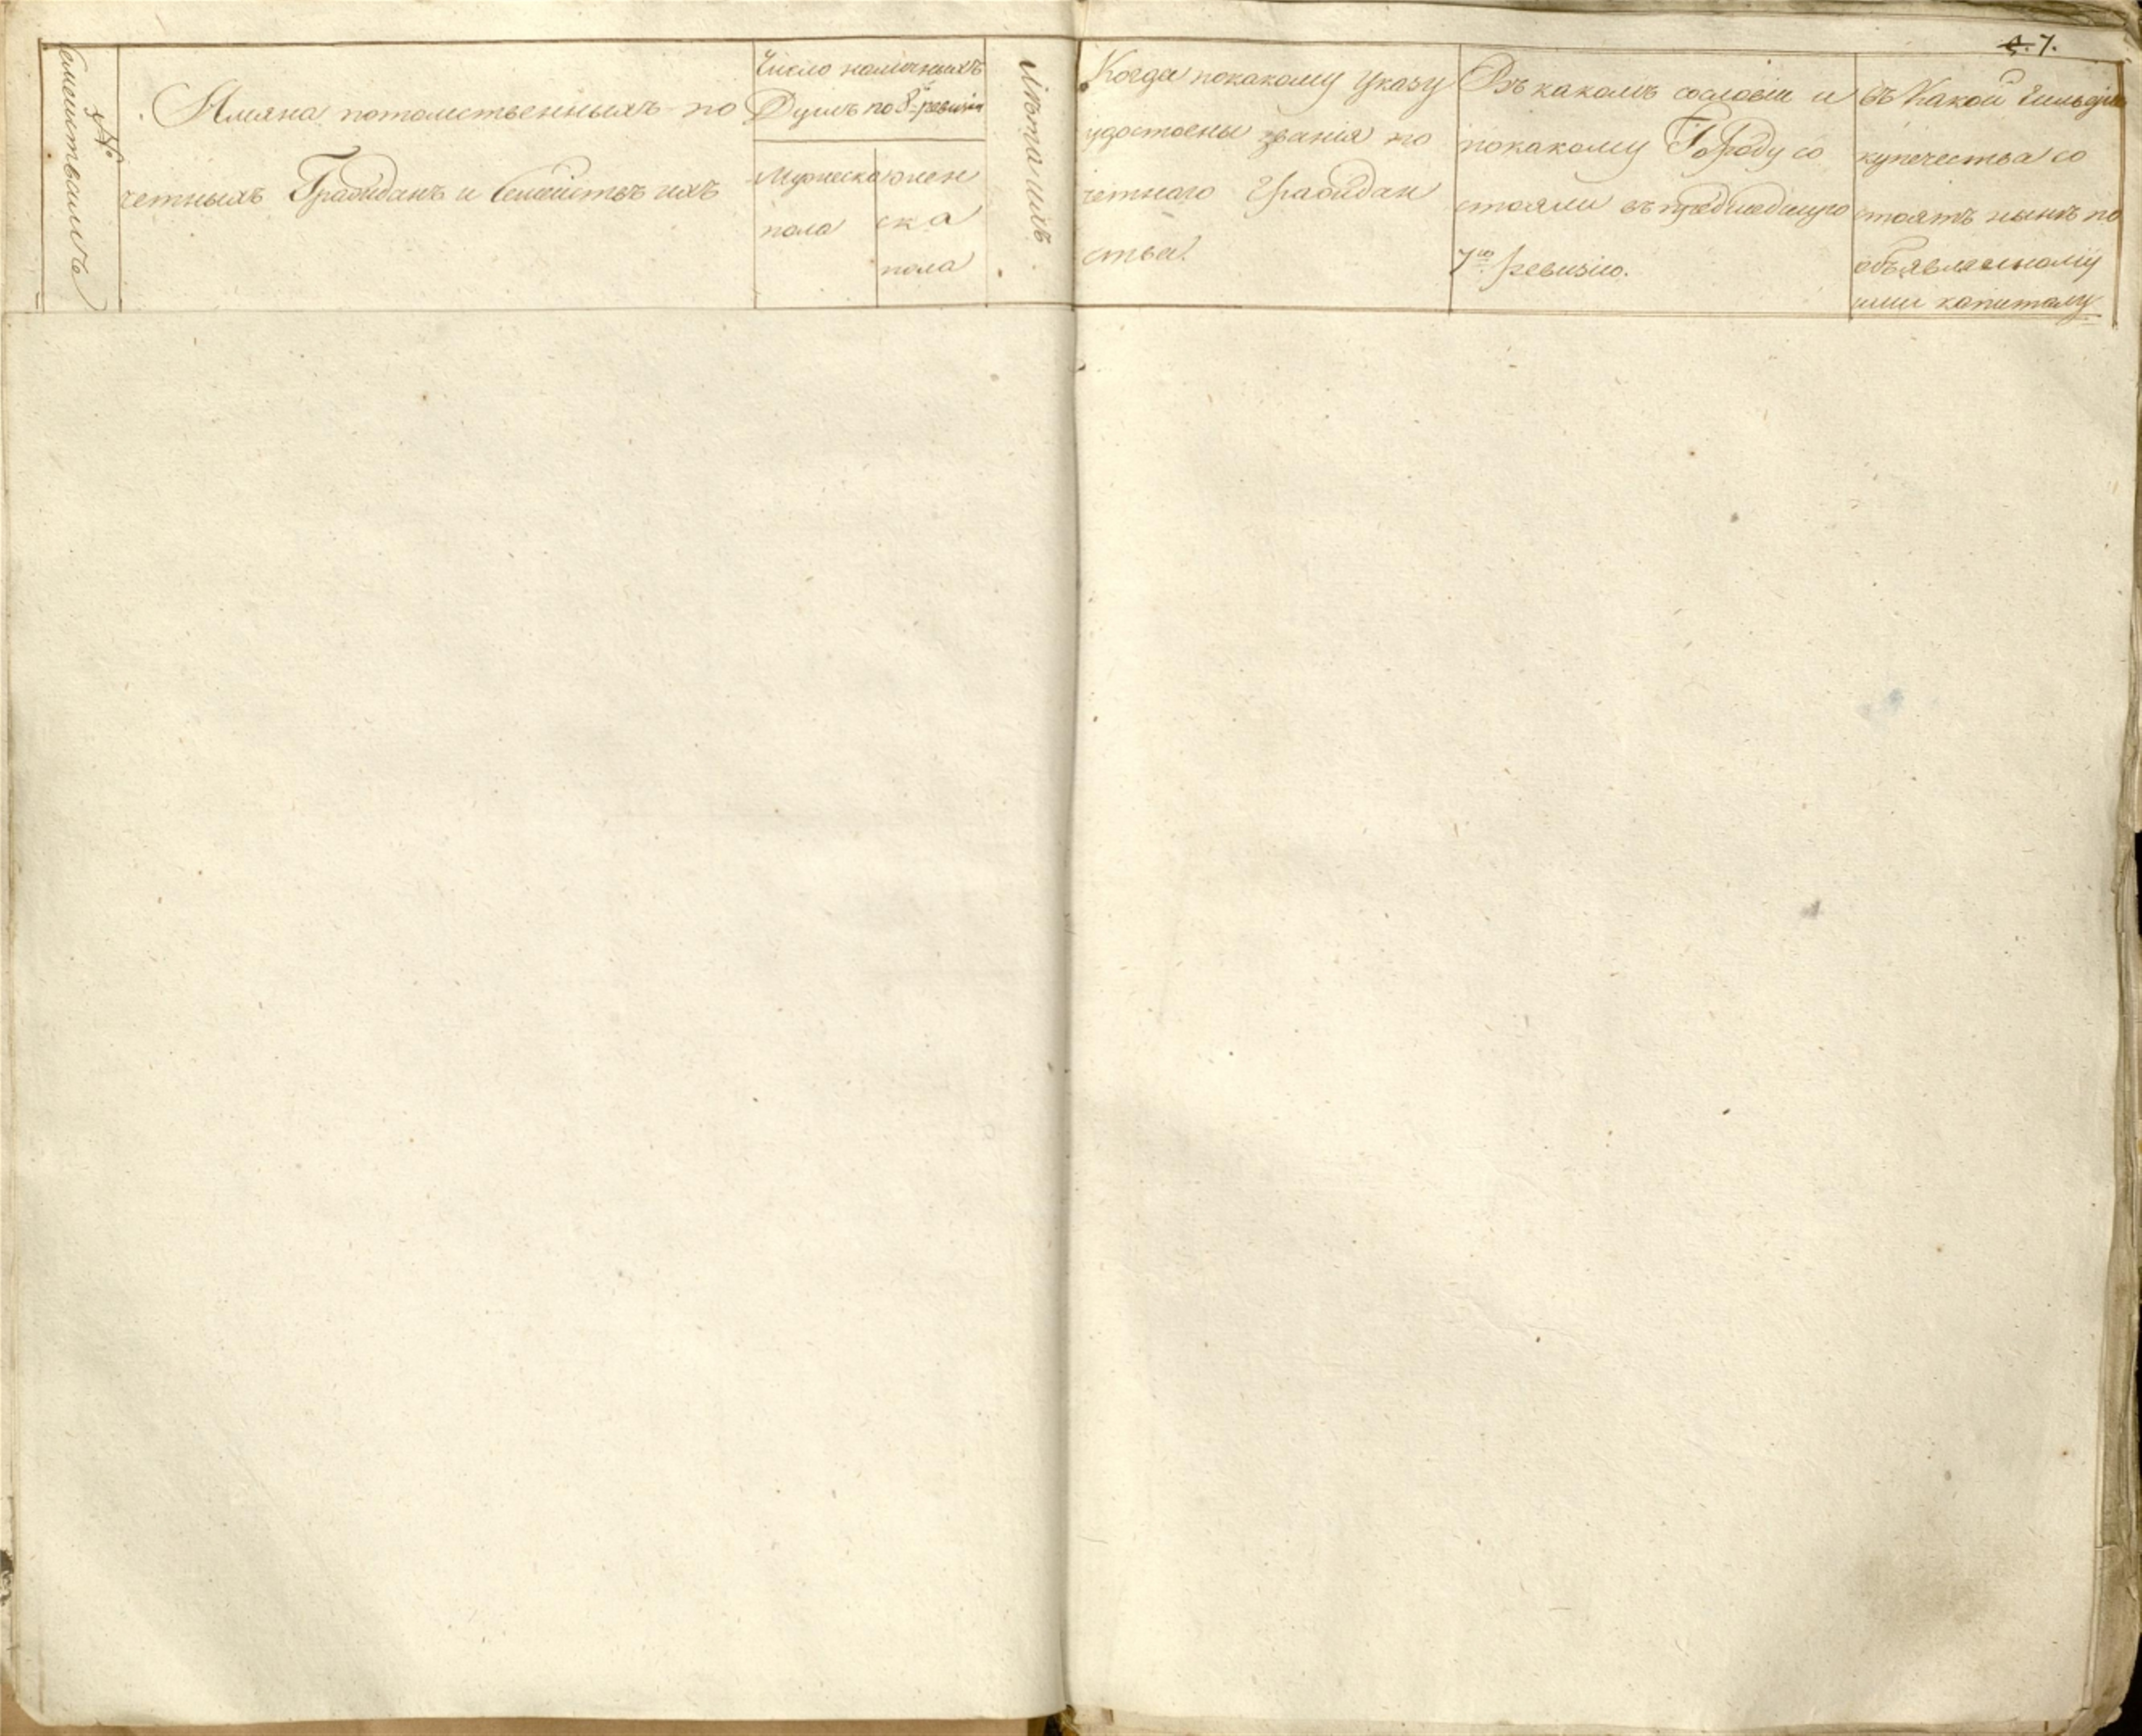 7.
№
Семействамъ
Имяна потомственныхъ по
четныхъ Гражданъ и Семействъ ихъ
Число наличныхъ
Душъ по 8й ревизіи
Мужеска
пола
жен
ска
пола
Лѣта ихъ
Когда покакому указу
удостоены званія по
четнаго Граждан
ства.
Въ какомъ сословіи и
покакому Городу со
стояли въ предшедшую
7ю ревизію.
въ Какой Гильдіи
купечества со
стоятъ нынѣ по
объявленному
ими капиталу